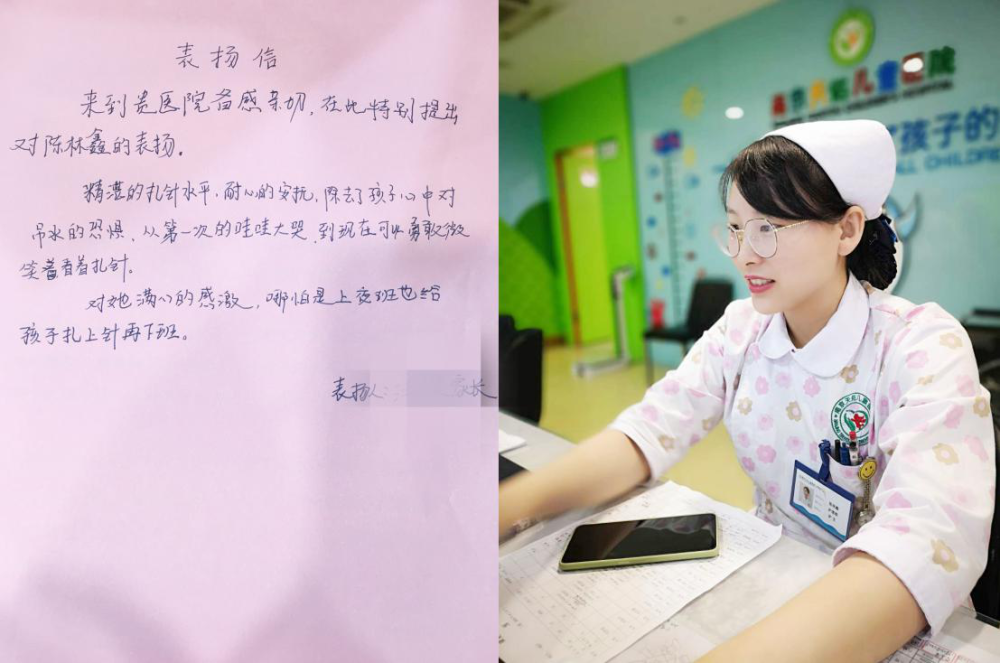 表扬信
来到贵医院备感亲切，在此特别提出
对陈林鑫的表扬。
精湛的扎针水平，耐心的安抚，除去了孩子心中对
吊水的恐惧，从第一次的哇哇大哭，到现在可以勇敢微
笑着看着扎针。
对她满心的感激，哪怕是上夜班也给
孩子扎上针再下班。
表扬人：
家长
儿童医院
孩子的
ALL CHILDREN